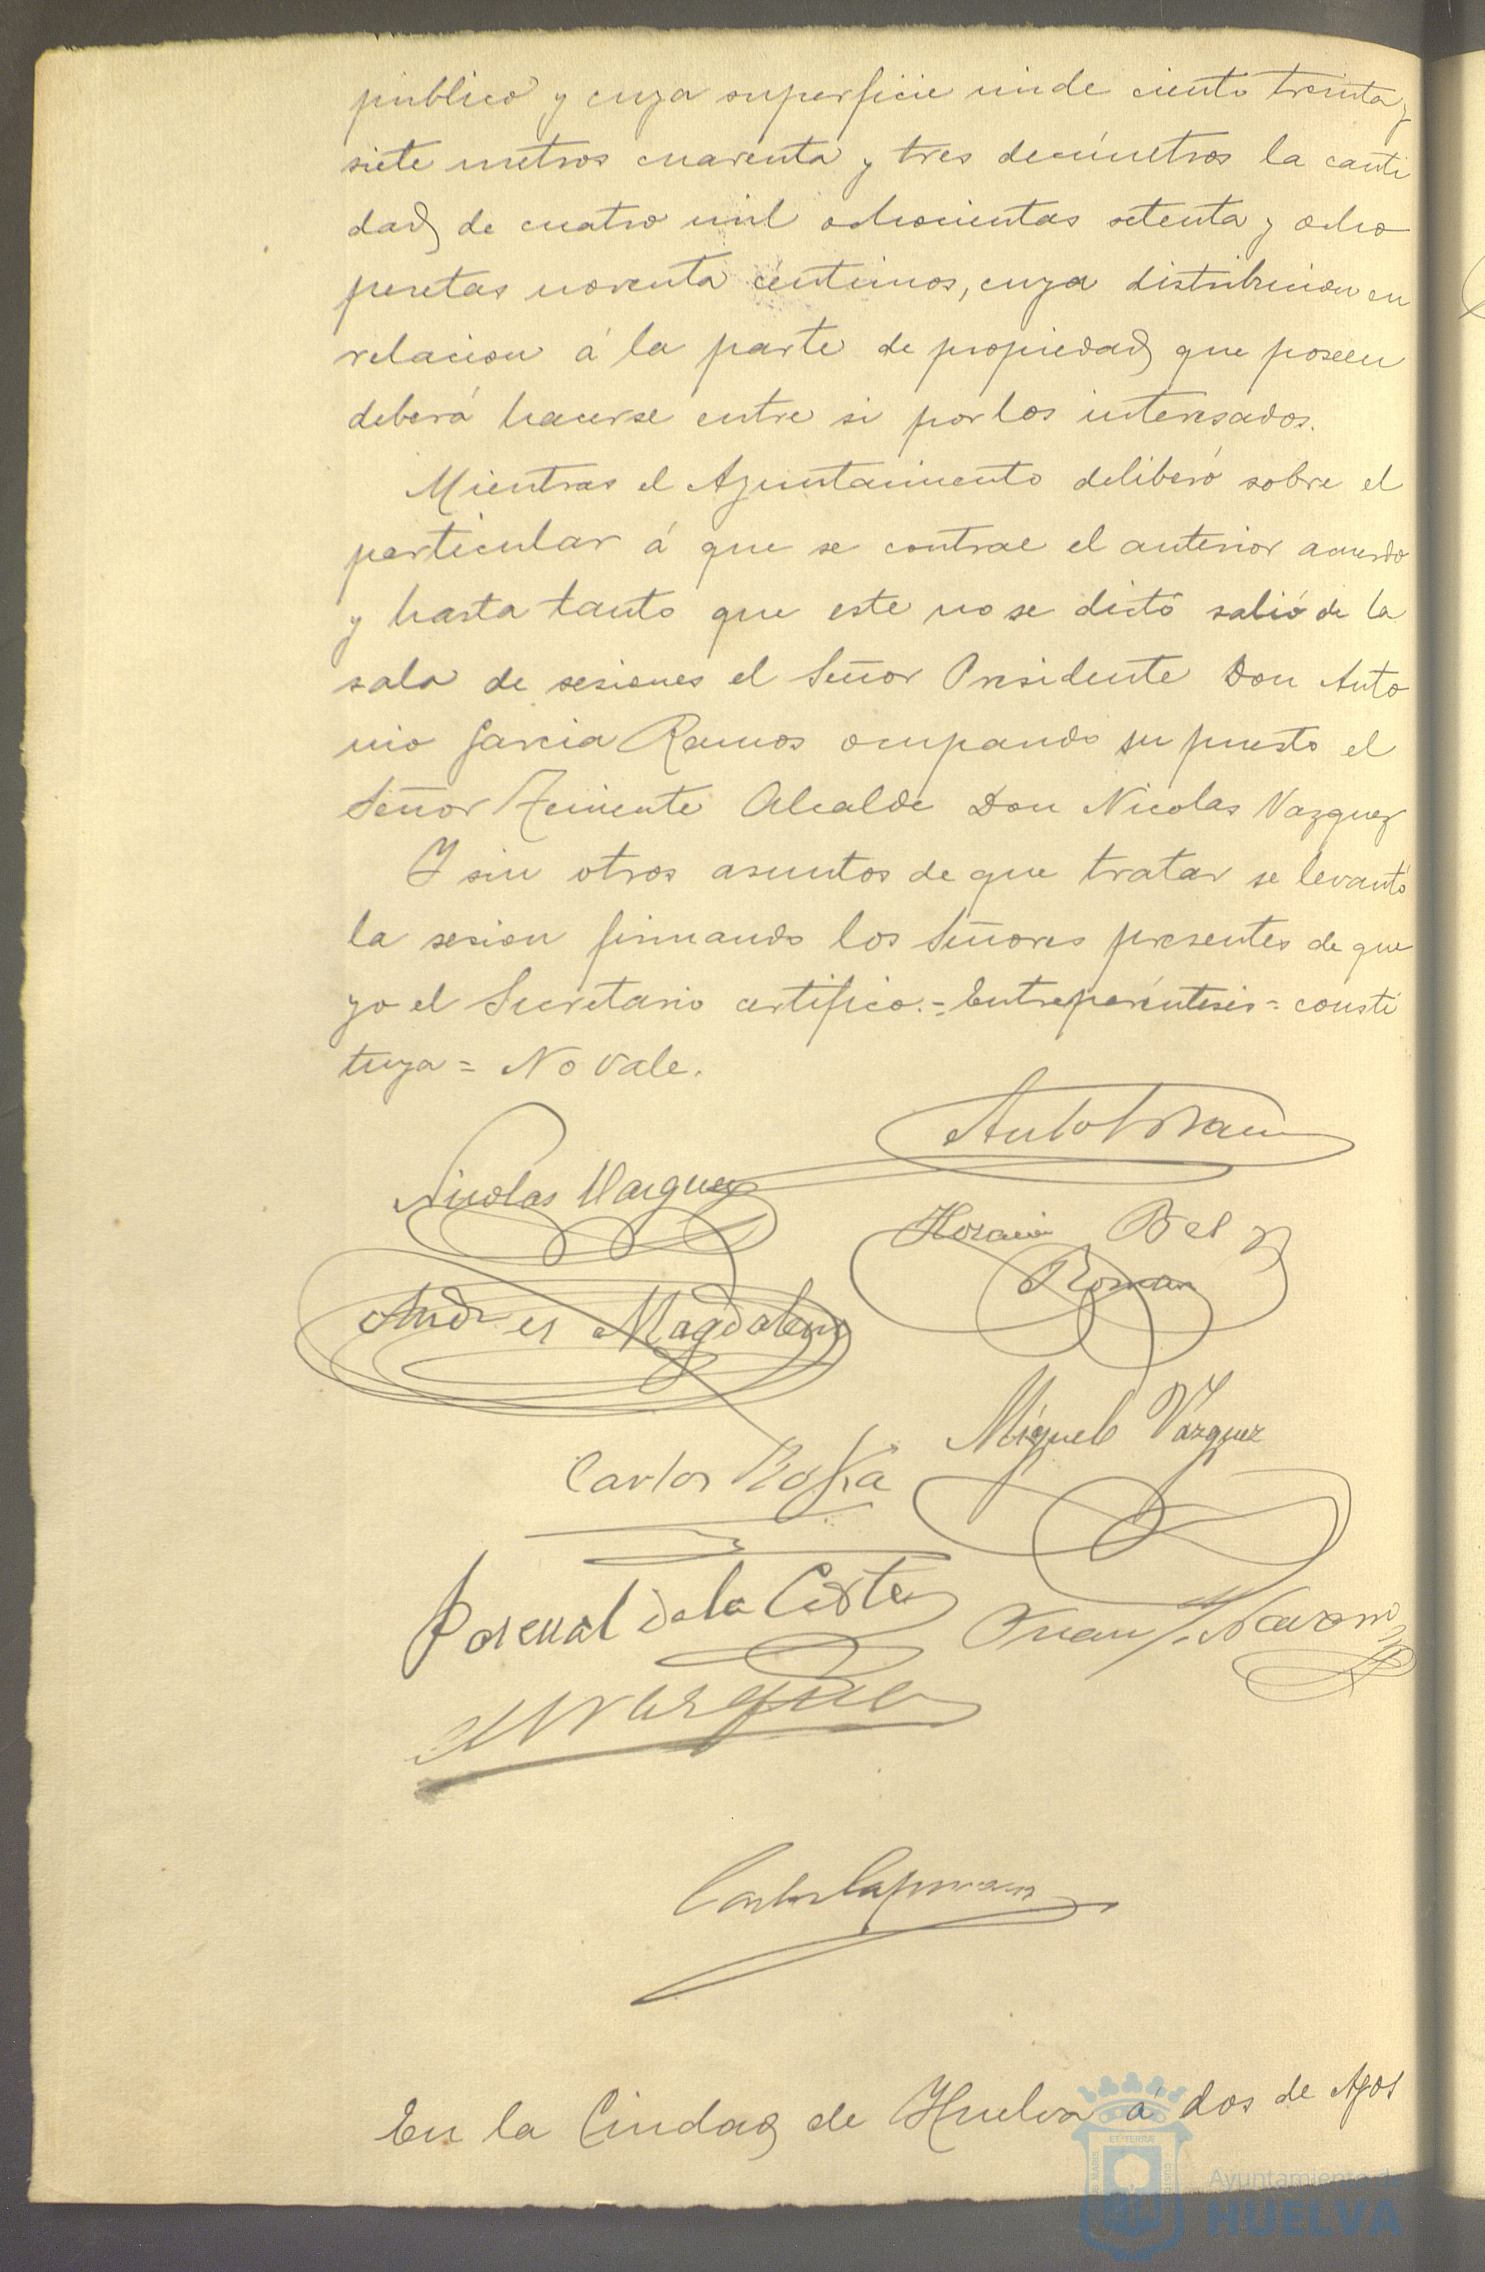 publico y cuya superficie mide ciento treinta y
siete metros cuarenta y tres decímetros la canti
dad de cuatro mil ochocientas setenta y ocho
pesetas noventa céntimos, cuya distribucion en
relacion á la parte de propiedad que poseen
deberá hacerse entre si por los interesados.
Mientras el Ayuntamiento deliberó sobre el
particular á que se contrae el anterior acuerdo
y hasta tanto que este no se dictó salió de la
sala de sesiones el Señor Presidente Don Anto
nio Garcia Ramos ocupando su puesto el
Señor Teniente Alcalde Don Nicolas Vazquez
Y sin otros asuntos de que tratar se levantó
la sesion firmando los Señores presentes de que
yo el Secretario certifico.=Entreparéntesis=consti
tuya=No vale.
Nicolas Vazquez
Horacio Bel
Roman
Andres Magdaleno
Miguel Vázquez
Carlos
Pascual de la Corte
Juan J. Navarro
Vazquez
En la Ciudad de Huelva á dos de Agos
MARIS ET TERRÆ CUSTOS
Ayuntamiento de
HUELVA